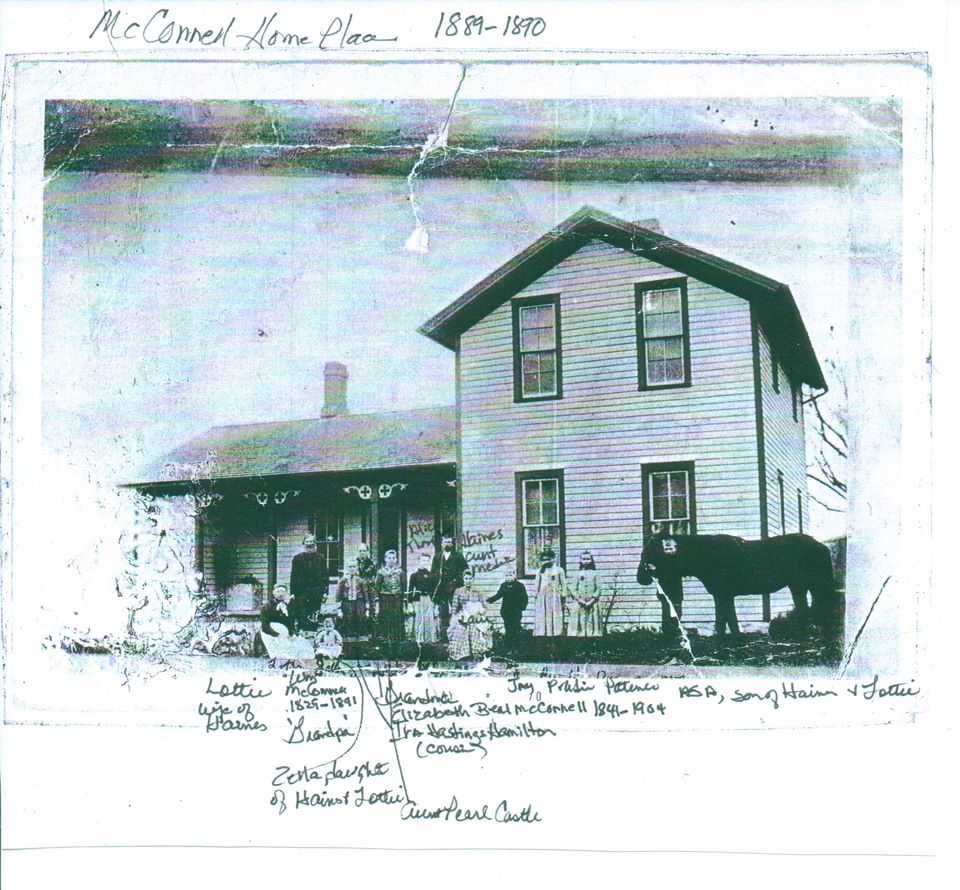 McConnell Home Place 1889-1890
Haines
Aunt
Lottie
wife of
Haines
Wm
McConnell
1829-1891
'Grandpa'
Grandma
Elizabeth Beal McConnell 1841-1904
Ira Hastings Hamilton
(Cousz)
Jay
ASA, son of Haines & Lottie
Zetta, daught
of Haines & Lottie
Aunt Pearl Castle